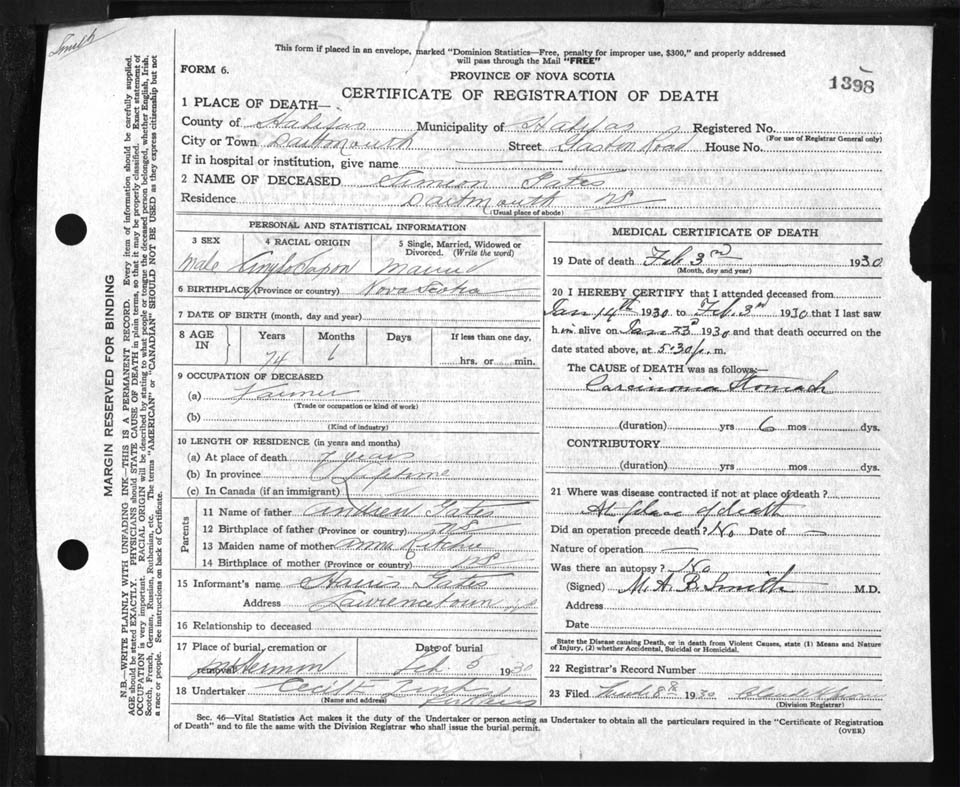 Smith
This form if placed in an envelope, marked "Dominion Statistics—Free, penalty for improper use, $300," and properly addressed
will pass through the Mail "FREE"
FORM 6.
PROVINCE OF NOVA SCOTIA
1398
CERTIFICATE OF REGISTRATION OF DEATH
1 PLACE OF DEATH—
County of Halifax Municipality of Halifax Registered No.
(For use of Registrar General only)
City or Town Dartmouth Street Gaston Road House No.
If in hospital or institution, give name
2 NAME OF DECEASED Simeon Gates
Residence Dartmouth NS
(Usual place of abode)
PERSONAL AND STATISTICAL INFORMATION
3 SEX 4 RACIAL ORIGIN 5 Single, Married, Widowed or
Divorced. (Write the word)
Male Anglo Saxon Married
6 BIRTHPLACE (Province or country) Nova Scotia
7 DATE OF BIRTH (month, day and year)
8 AGE IN Years Months Days If less than one day,
74 1 hrs. or min.
9 OCCUPATION OF DECEASED
(a) Farmer
(Trade or occupation or kind of work)
(b)
(Kind of industry)
10 LENGTH OF RESIDENCE (in years and months)
(a) At place of death 7 years
(b) In province Lifetime
(c) In Canada (if an immigrant)
Parents
11 Name of father Andrew Gates
12 Birthplace of father (Province or country) NS
13 Maiden name of mother Anna Ritchie
14 Birthplace of mother (Province or country) NS
15 Informant's name Harris Gates
Address Lawrencetown
16 Relationship to deceased
17 Place of burial, cremation or removal Date of burial
Mt Hermon Feb. 5 1930
18 Undertaker Cecil E.
(Name and address)
MEDICAL CERTIFICATE OF DEATH
19 Date of death Feb 3rd 1930
(Month, day and year)
20 I HEREBY CERTIFY that I attended deceased from
Jan 14th 1930 to Feb. 3rd 1930 that I last saw
him alive on Jan 23rd 1930 and that death occurred on the
date stated above, at 5.30 p. m.
The CAUSE of DEATH was as follows:—
Carcinoma Stomach
(duration) yrs 6 mos dys.
CONTRIBUTORY
(duration) yrs mos dys.
21 Where was disease contracted if not at place of death?
At place of death
Did an operation precede death? No Date of —
Nature of operation —
Was there an autopsy? No
(Signed) M. A. B. Smith M.D.
Address
Date
State the Disease causing Death, or in death from Violent Causes, state (1) Means and Nature
of Injury, (2) whether Accidental, Suicidal or Homicidal.
22 Registrar's Record Number
23 Filed 8th 1930
(Division Registrar)
Sec. 46—Vital Statistics Act makes it the duty of the Undertaker or person acting as Undertaker to obtain all the particulars required in the "Certificate of Registration
of Death" and to file the same with the Division Registrar who shall issue the burial permit.
(OVER)
MARGIN RESERVED FOR BINDING
N.B.—WRITE PLAINLY WITH UNFADING INK—THIS IS A PERMANENT RECORD. Every item of information should be carefully supplied.
AGE should be stated EXACTLY. PHYSICIANS should STATE CAUSE OF DEATH in plain terms, so that it may be properly classified. Exact statement of
OCCUPATION is very important. RACIAL ORIGIN will be described by stating to what people or tongue the deceased person belonged, whether English, Irish,
Scotch, French, German, Russian, Ruthenian, etc. The terms "AMERICAN" or "CANADIAN" SHOULD NOT BE USED as they express citizenship but not
a race or people. See instructions on back of Certificate.